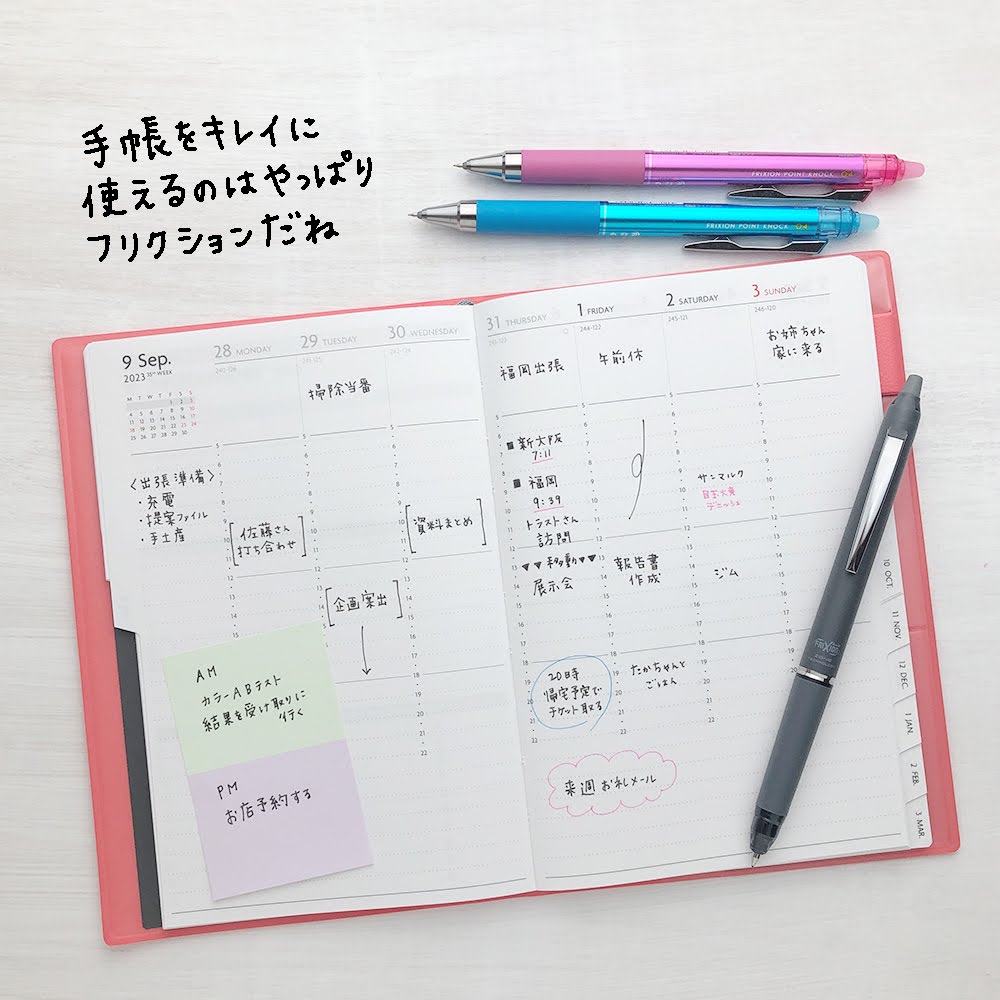 手帳をキレイに
使えるのはやっぱり
フリクションだね
FRIXION POINT KNOCK 04
FRIXION POINT KNOCK 04
9 Sep.
2023 35th WEEK
M T W T F S S
1 2 3
4 5 6 7 8 9 10
11 12 13 14 15 16 17
18 19 20 21 22 23 24
25 26 27 28 29 30
28 MONDAY
240-126
29 TUESDAY
241-125
30 WEDNESDAY
242-124
31 THURSDAY
243-123
1 FRIDAY
244-122
2 SATURDAY
245-121
3 SUNDAY
246-120
掃除当番
福岡出張
午前休
お姉ちゃん
家に来る
〈出張準備〉
・充電
・提案ファイル
・手土産
佐藤さん
打ち合わせ
資料まとめ
企画案出
■新大阪
7:11
■福岡
9:39
トラストさん
訪問
▼▼移動▼▼
展示会
報告書
作成
サンマルク
目玉大臭
デニッシュ
ジム
20日時
帰宅予定で
チケット取る
たかちゃんと
ごはん
来週お礼メール
AM
カラーABテスト
結果を受け取りに
行く
PM
お店予約する
FRIXION
10 OCT.
11 NOV.
12 DEC.
1 JAN.
2 FEB.
3 MAR.